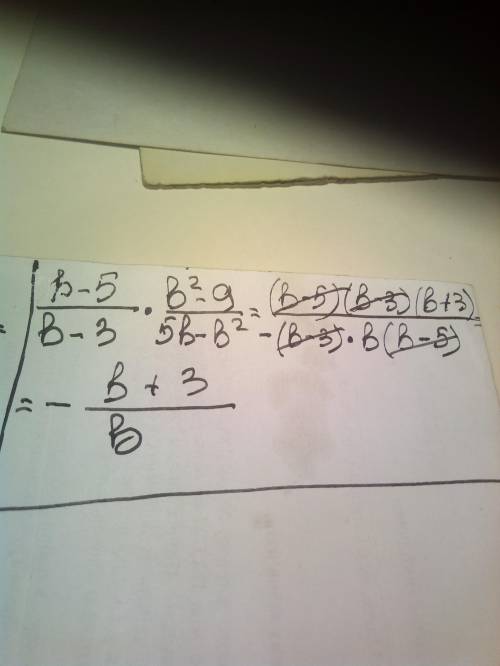 = | (b-5)/(b-3) · (b²-9)/(5b-b²) = ((b-5)(b-3)(b+3))/(-(b-3)·b(b-5)) =
= - (b+3)/b